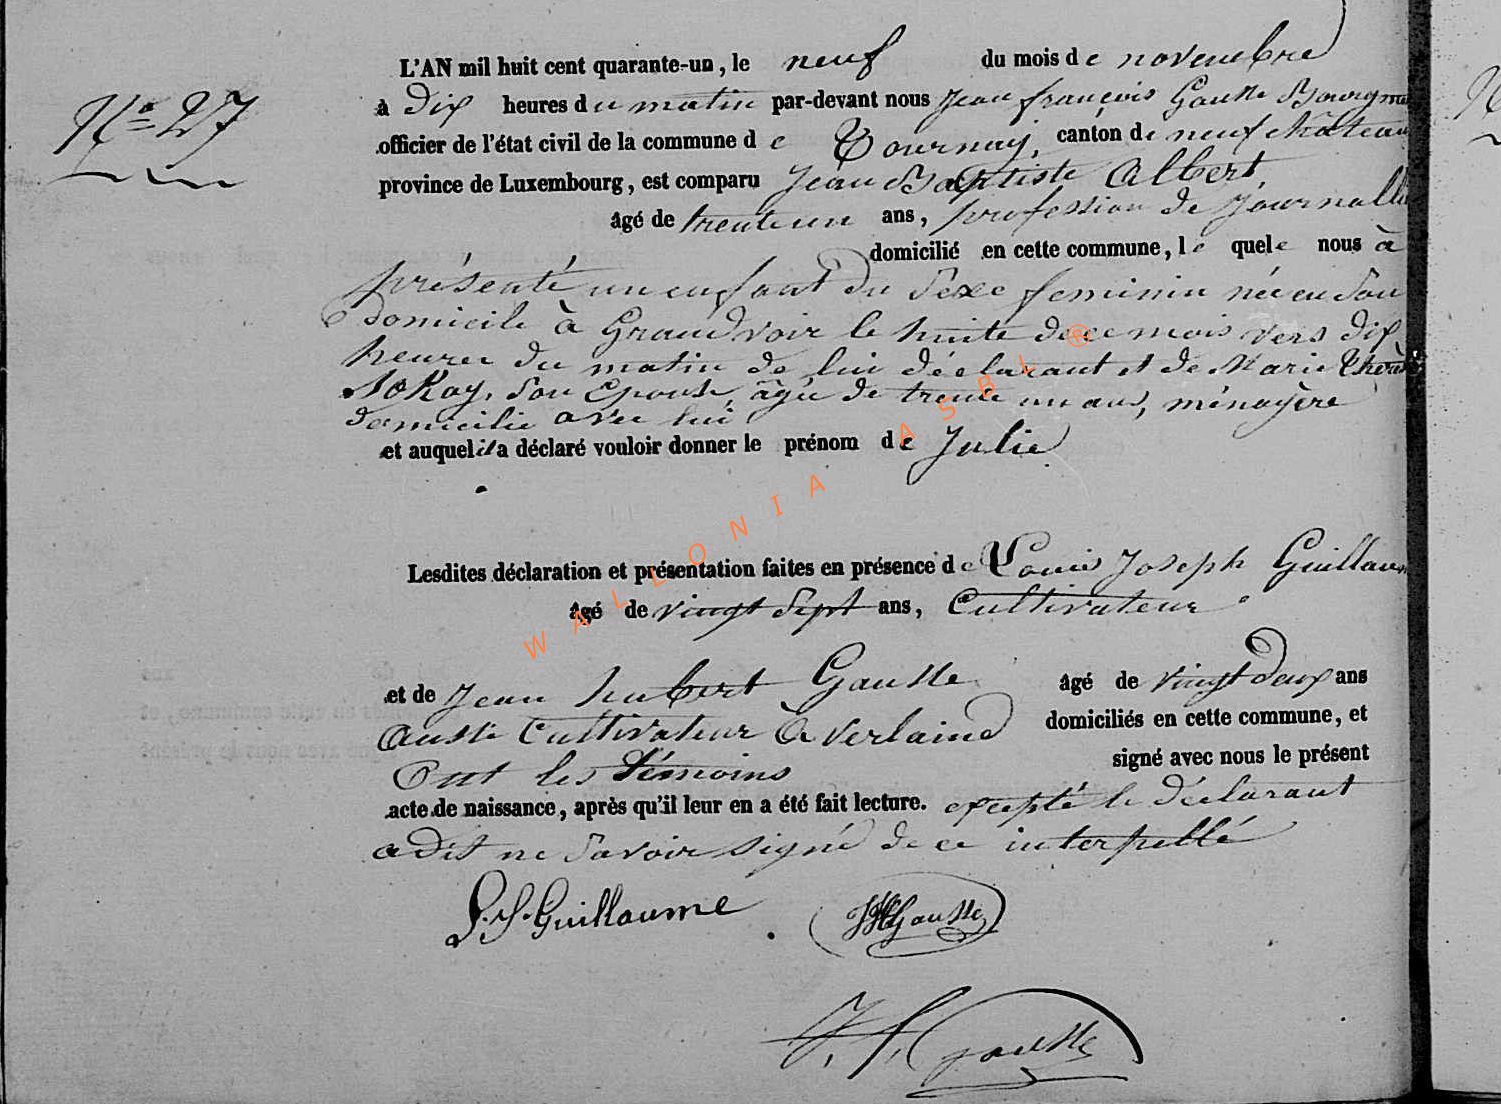 L'AN mil huit cent quarante-un, le neuf du mois de novembre
N° 27
à Dix heures du matin par-devant nous Jean françois Gausse Bourgm
officier de l'état civil de la commune de Tournay, canton de neufchâteau
province de Luxembourg, est comparu Jean Baptiste Albert,
âgé de trente un ans, profession de Journallie
domicilié en cette commune, le quele nous à
présenté un enfant du Sexe feminin née en Son
Domicile à Grandvoir le huite de ce mois vers dix
heures du matin de lui déclarant et de Marie Thérès
Son Epouse, âgée de trente un ans, ménagère
domicilie avec lui
et auquel il a déclaré vouloir donner le prénom de Julie
Lesdites déclaration et présentation faites en présence de Louis Joseph Guillaum
âgé de vingt Sept ans, Cultivateur
et de Jean hubert Gausse âgé de vingt deux ans
aussi Cultivateur à Verlaine domiciliés en cette commune, et
Ont les Témoins signé avec nous le présent
acte de naissance, après qu'il leur en a été fait lecture. excepté le Déclarant
a Dit ne Savoir signé de ce interpellé
L. J. Guillaume JH Gausse
J. f. Gausse
WALLONIA ASBL ®